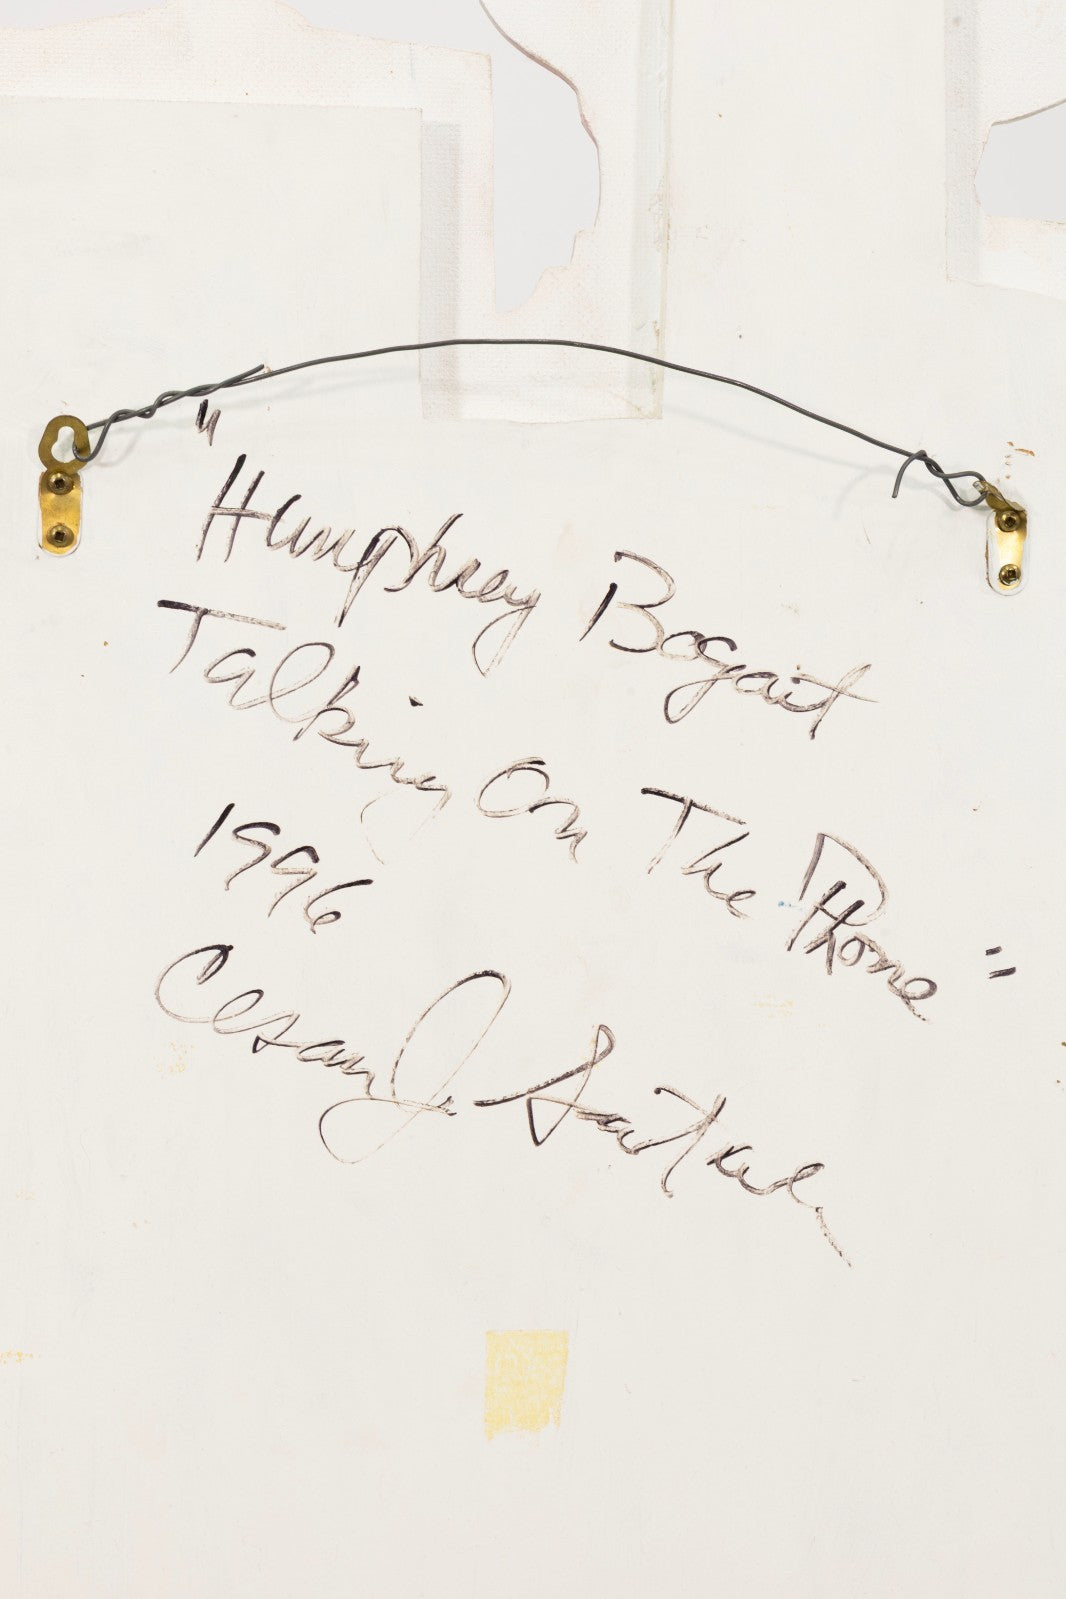 "Humphrey Bogart
Talking On The Phone"
1996
Cesar Jr Santander